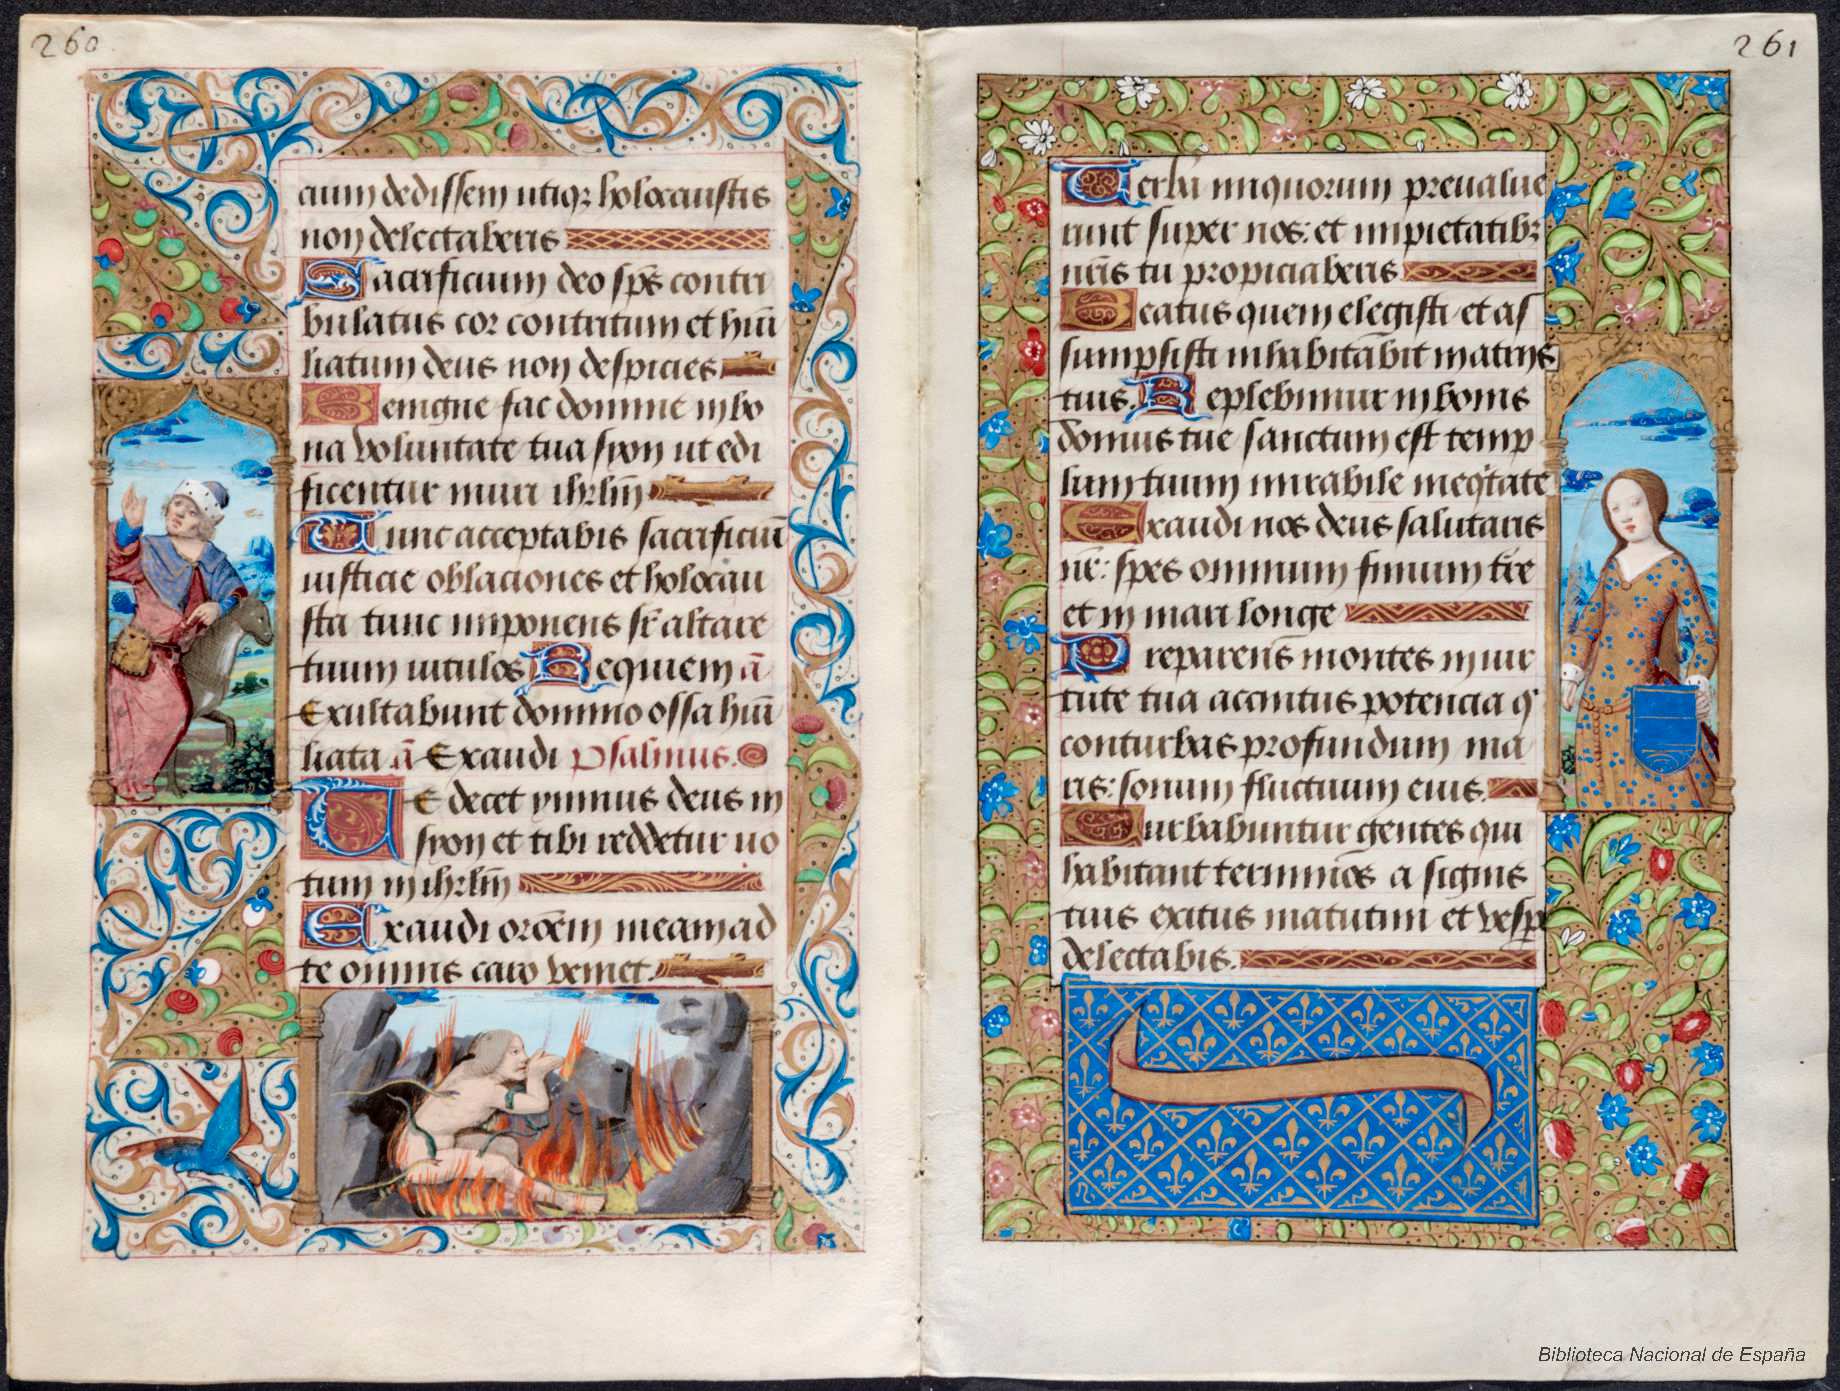 260
cium dedissem utiqꝫ holocaustis
non delectaberis
Sacrificium deo sp̄s contri
bulatus cor contritum et hūi
liatum deus non despicies
Benigne fac domine in bo
na voluntate tua syon ut edi
ficentur muri ihrl̄m
Tunc acceptabis sacrificiū
iusticie oblaciones et holocau
sta tunc imponens sr̄ altare
tuum vitulos Requiem ā
Exultabunt domino ossa hūi
liata ā Exaudi psalmus.
Te decet ymnus deus in
syon et tibi reddetur uo
tum in ihrl̄m
Exaudi oro̅em meam ad
te omnis caro veniet.
261
Verba iniquorum preualue
runt super nos: et impietatibꝫ
nr̄is tu propiciaberis
Beatus quem elegisti et as
sumpsisti inhabitabit in atriis
tuis. Replebimur in bonis
domus tue sanctum est temp
lum tuum mirabile in eq̄tate
Exaudi nos deus salutaris
nr̄: spes omnium finium tr̄e
et in mari longe
Preparens montes in uir
tute tua accintus potencia q̄
conturbas profundum ma
ris: sonum fluctuum eius.
Turbabuntur gentes qui
habitant terminos a signis
tuis exitus matutini et vesp̄e
delectabis.
Biblioteca Nacional de España